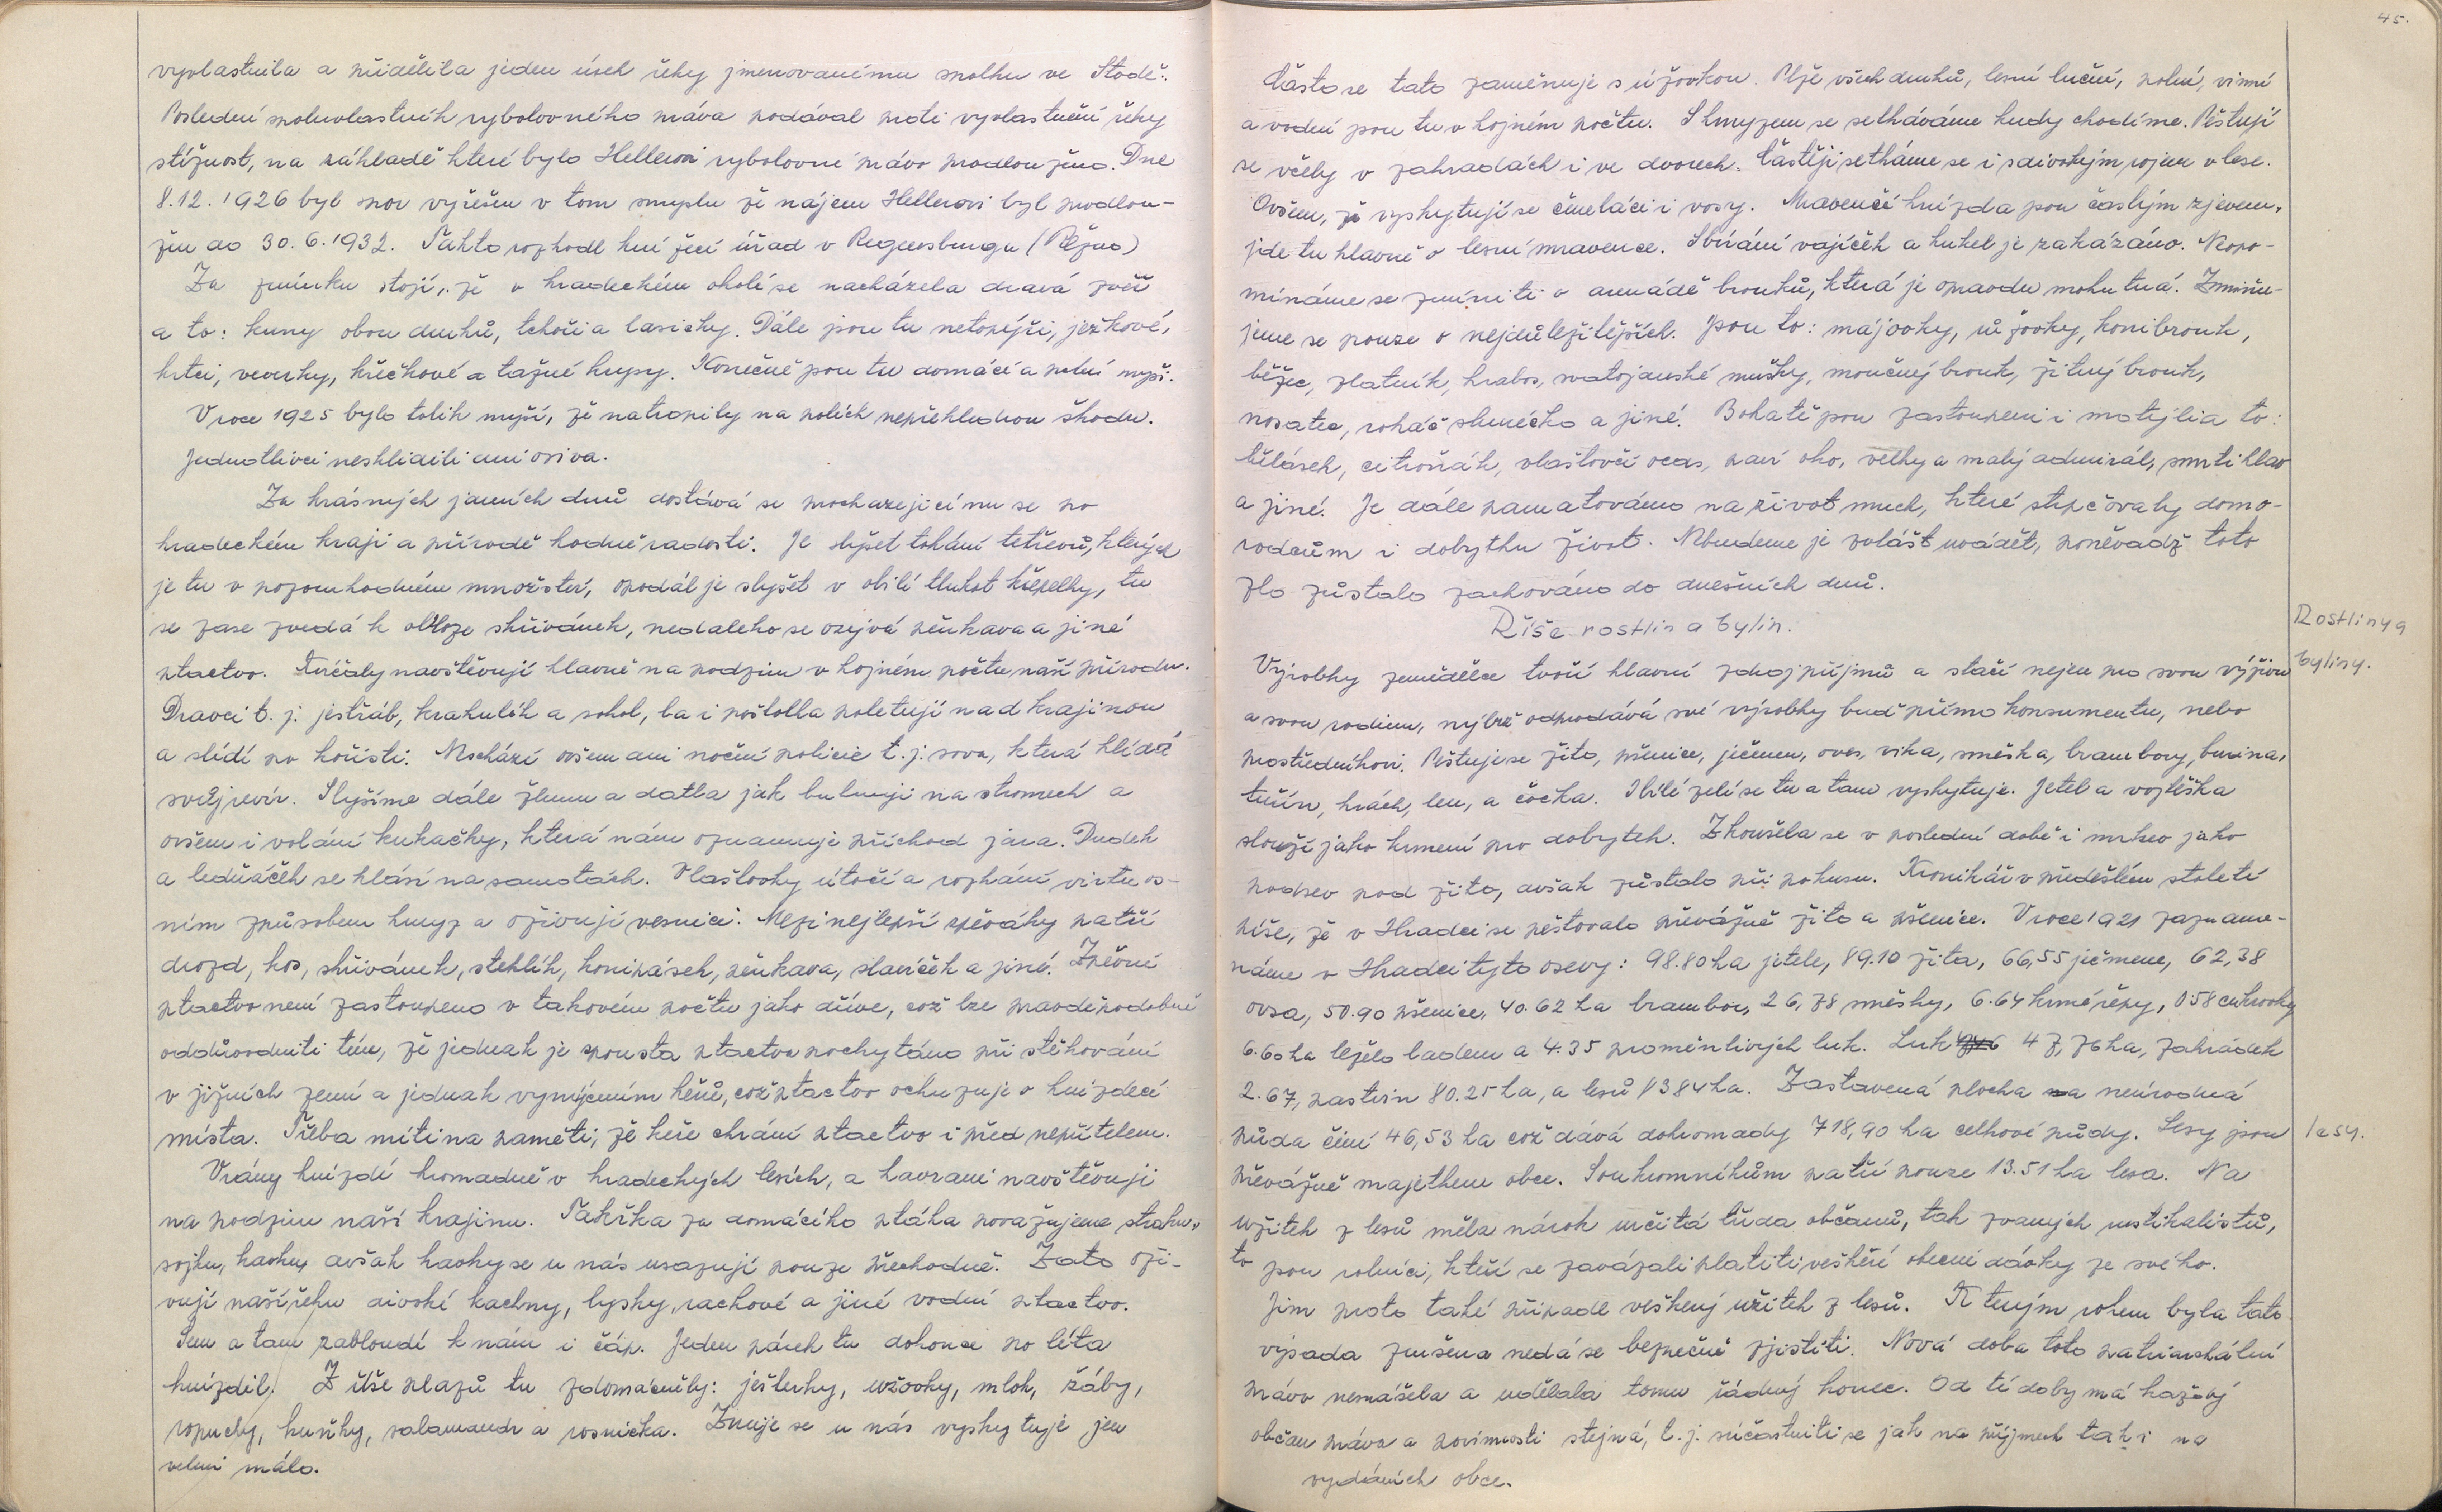 vyvlastnila a přidělila jeden úsek řeky jmenovanému spolku ve Stodě.
Poslední spoluvlastník rybolovného práva podával proti vyvlastnění řeky
stížnost, na základě které bylo Hellerovi rybolovné právo prodlouženo. Dne
8.12.1926 byl spor vyřešen v tom smyslu že nájem Hellerovi byl prodlou-
žen do 30.6.1932. Takto rozhodl kní žecí úřad v Regensburgu (Řezno)
Za zmínku stojí, že v hradeckém okolí se nacházela dravá zvěř
a to: kuny obou druhů, tchoři a lasičky. Dále jsou tu netopýři, ježkové,
krtci, veverky, křečkové a tažné krysy. Konečně jsou tu domácí a polní myši.
V roce 1925 bylo tolik myší, že natropily na polích nepřehlednou škodu.
Jednotlivci neskliidili ani osiva.
Za krásných jarních dnů dostává se procházejícímu se po
hradeckém kraji a přírodě hodně radosti. Je slyšet tokání tetřevů, kterých
je tu v pozoruhodném množství, opodál je slyšet v obilí tlukot křepelky, tu
se zase zvedá k obloze skřivánek, nedaleko se ozývá pěnkava a jiné
ptactvo. Kvíčaly navštěvují hlavně na podzim v hojném počtu naší přírodu.
Dravci t. j. jestřáb, krahulík a sokol, ba i poštolka poletují nad krajinou
a slídí po kořisti. Neschází ovšem ani noční policie t. j. sova, která hlídá
svůj revír. Slyšíme dále žlunu a datla jak bubnují na stromech a
ovšem i volání kukačky, která nám oznamuje příchod jara. Dudek
a ledňáček se hlásí na samotách. Vlaštovky útočí a rozhání virtuos-
ním způsobem hmyz a oživují vesnici. Mezi nejlepší zpěváky patří
drozd, kos, skřivánek, stehlík, konipásek, pěnkava, slavíček a jiné. Zpěvné
ptactvo není zastoupeno v takovém počtu jako dříve, což lze pravděpodobně
oddůvodniti tím, že jednak je spousta ptactva pochytáno při stěhování
v jižních zemí a jednak vymýcením keřů, což ptactvo ochuzuje o hnízdecí
místa. Třeba míti na paměti, že keře chrání ptactvo i před nepřítelem.
Vrány hnízdí hromadně v hradeckých lesích, a havrani navštěvují
na podzim naší krajinu. Takřka za domácího ptáka považujeme straku,
sojku, kavku, avšak kavky se u nás usazují pouze přechodně. Zato oži-
vují naší řeku divoké kachny, lysky, rackové a jiné vodní ptactvo.
Sem a tam zabloudí k nám i čáp. Jeden párek tu dokonce po léta
hnízdil. Z říše plazů tu zdomácněly: ještěrky, užovky, mlok, žáby,
ropuchy, kuňky, salamandr a rosnička. Zmije se u nás vyskytuje jen
velmi málo.
45.
Často se tato zaměňuje s úžovkou. Plže všech druhů, lesní luční, polní, vinní
a vodní jsou tu v hojném počtu. S hmyzem se setkáváme kudy chodíme. Pěstují
se včely v zahradách i ve dvorech. Častěji setkáme se i s divokým rojem v lese.
Ovšem, že vyskytují se čmeláci i vosy. Mravenčí hnízda jsou častým zjevem,
jde tu hlavně o lesní mravence. Sbírání vajíček a kukel je zakázáno. Nepo-
mínáme se zmíniti o armádě brouků, která je opravdu mohutná. Zmiňu-
jeme se pouze o nejdůležitějších. Jsou to: májovky, růžovky, konibrouk,
běžec, zlatník, hrabos, svatojanské mušky, moučný brouk, žitný brouk,
nosatec, roháč slunéčko a jiné. Bohatě jsou zastoupeni i motýli a to:
bělásek, citroňák, vlaštovčí ocas, paví oko, velký a malý admirál, smrtihlav
a jiné. Je dále pamatováno na život much, které strpčovaly domo-
rodcům i dobytku život. Nebudeme je zvlášt uvádět, poněvadž toto
zlo zůstalo zachováno do dnešních dnů.
Říše rostlin a bylin.
Rostliny a
byliny.
Výrobky zemědělce tvoří hlavní zdroj příjmů a stačí nejen pro svou výživu
a svou rodinu, nýbrž odprodává své výrobky buď přímo konsumentu, nebo
prostředníkovi. Pěstuje se žito, pšenice, ječmen, oves, vika, směska, brambory, burina,
tuřín, hrách, len, a čočka. I bílé zelí se tu a tam vyskytuje. Jetel a vojtěška
slouží jako krmení pro dobytek. Zkoušela se v poslední době i mrkev jako
podsev pod žito, avšak zůstalo při pokusu. Kronikář v předešlém století
píše, že v Hradci se pěstovalo převážně žito a pšenice. V roce 1921 zazname-
náme v Hradci tyto osevy: 98.80 ha jetele, 89.10 žita, 66,55 ječmene, 62,38
ovsa, 50.90 pšenice, 40.62 ha brambor, 26,78 směsky, 6.64 krmé řepy, 0 58 cukrovky
6.60 ha leželo ladem a 4.35 proměnlivých luk. Luk 47,76 ha, zahrádek
2.67, pastvin 80.25 ha, a lesů 1384 ha. Zastavená plocha a neúrodná
půda činí 46,53 ha což dává dohromady 718,90 ha celkové půdy. Lesy jsou
lesy.
převážně majetkem obce. Soukromníkům patří pouze 13.51 ha lesa. Na
užitek z lesů měla nárok určitá třída občanů, tak zvaných rustikalistů,
to jsou rolníci, kteří se zavázali platiti veškeré obecní dávky ze svého.
Jim proto také připadl veškerý užitek z lesů. Kterým rokem byla tato
výsada zrušena nedá se bezpečně zjistiti. Nová doba toto patriarchální
právo nemášela a udělala tomu řádný konec. Od té doby má každý
občan práva a povinnosti stejná, t. j. súčastniti se jak na příjmech tak i na
vydáních obce.